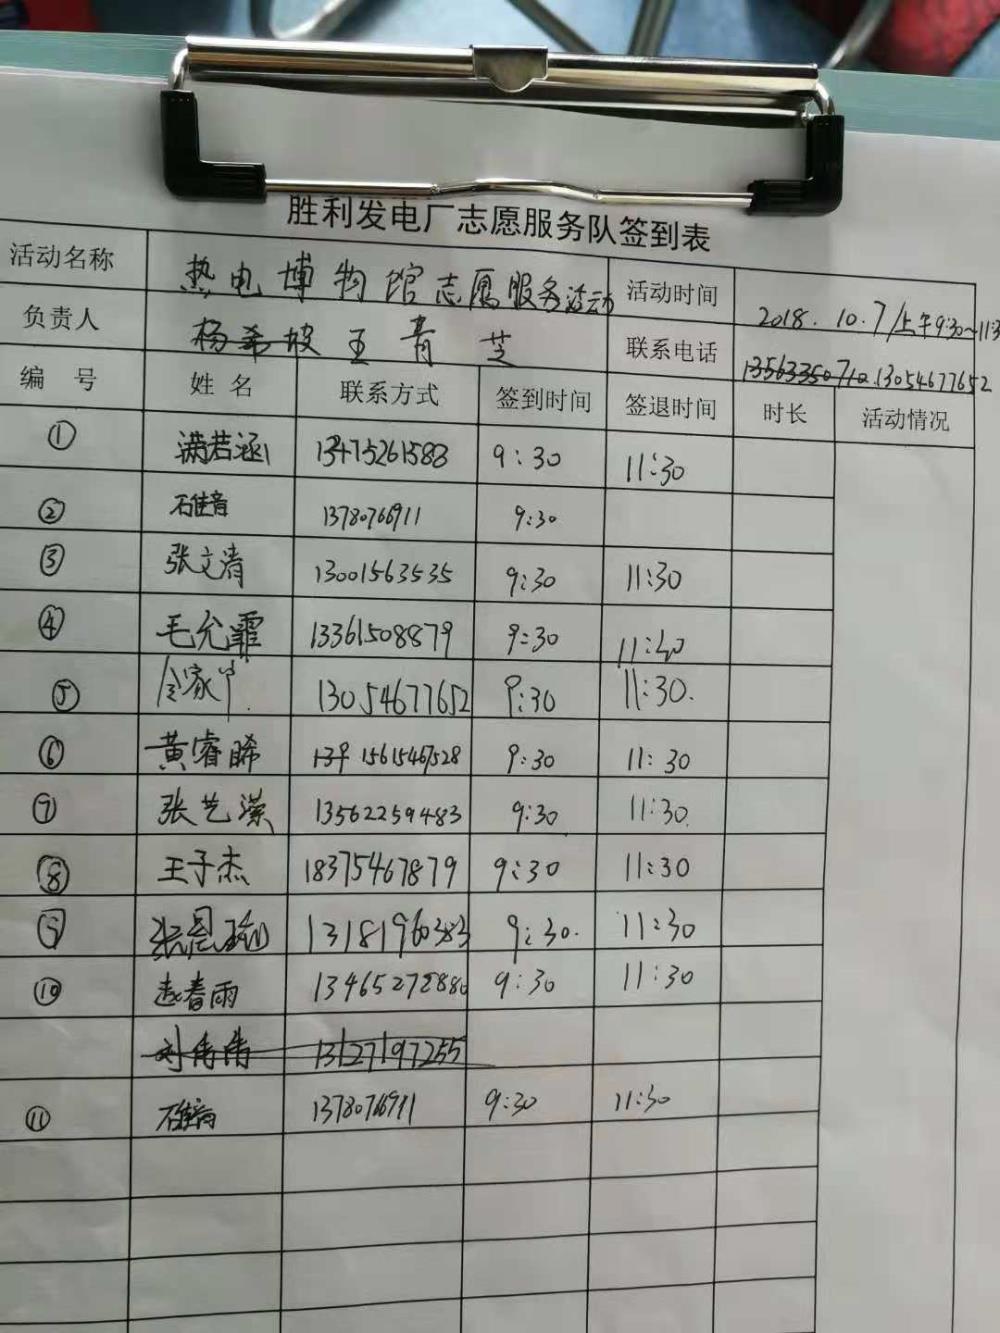 胜利发电厂志愿服务队签到表
活动名称 热电博物馆志愿服务活动 活动时间 2018.10.7/上午9:30~11:3
负责人 杨希坡 王青芝 联系电话 13563350710.13054677652
编号 姓名 联系方式 签到时间 签退时间 时长 活动情况
① 满若涵 13475261583 9:30 11:30
② 石佳音 13780766911 9:30
③ 张文清 13001563535 9:30 11:30
④ 毛允霏 13361508879 9:30 11:40
⑤ 13054677652 9:30 11:30.
⑥ 黄睿晞 15615467528 9:30 11:30
⑦ 张艺潆 13562259483 9:30 11:30
⑧ 王子杰 18375467879 9:30 11:30
⑨ 张恩瑜 13181960383 9:30. 11:30
⑩ 赵春雨 13465272880 9:30 11:30
13127197255
⑪ 石佳音 13780766911 9:30 11:30